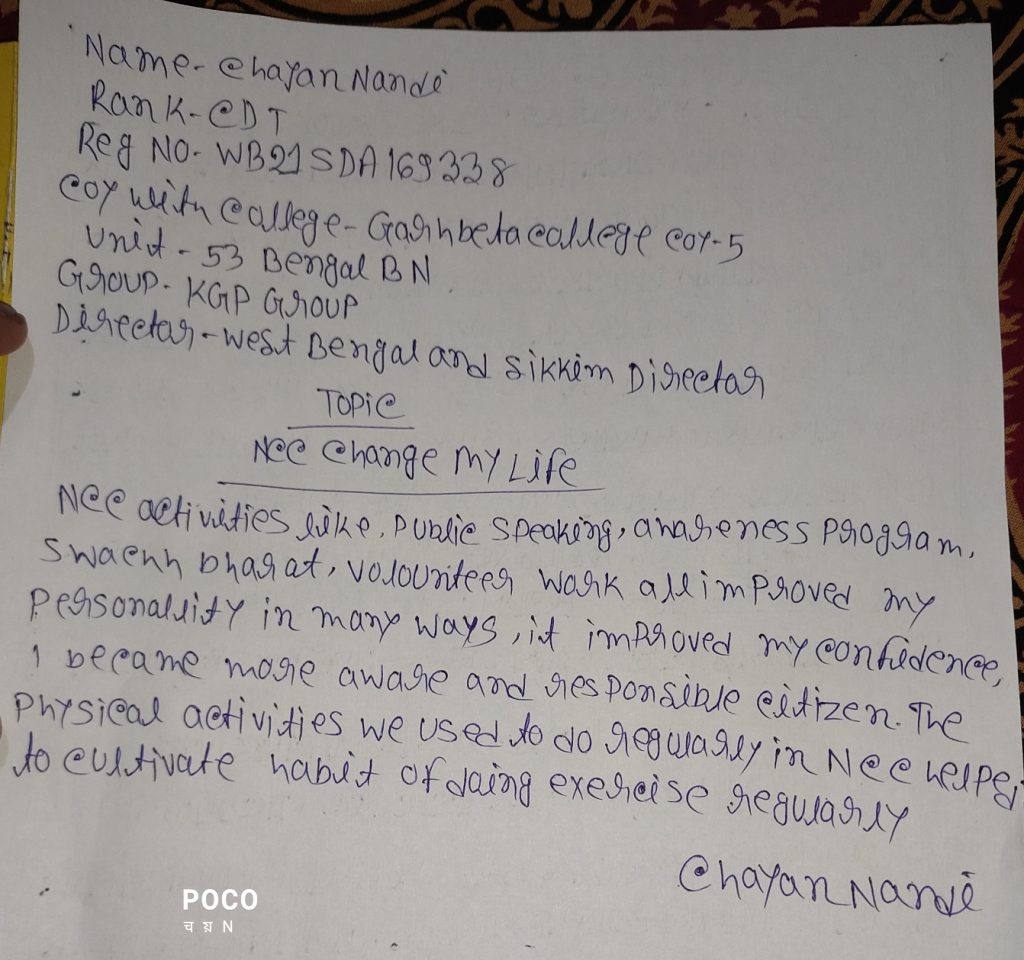 Name- Chayan Nandi
Rank- CDT
Reg No- WB21SDA169338
Coy with College- Garhbeta College Coy-5
Unit - 53 Bengal BN
Group- KGP Group
Director- West Bengal and Sikkim Director
Topic
Ncc Change My Life
Ncc activities like, Public speaking, awareness Program,
Swachh bharat, volounteer work all improved my
Personality in many ways, it improved my confidence,
I became more aware and responsible citizen. The
Physical activities we used to do regularly in Ncc helped
to cultivate habit of doing exercise regularly
Chayan Nandi
POCO
চয়N